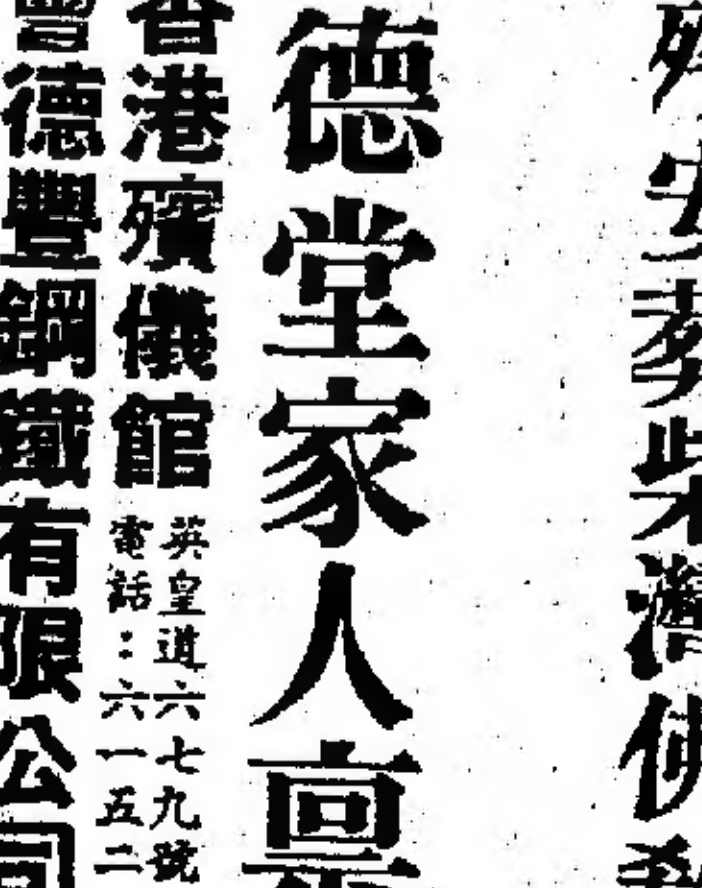 安葬柴灣佛教
德堂家人稟
香港殯儀館
英皇道六七九號
電話：六一五二
會德豐鋼鐵有限公司